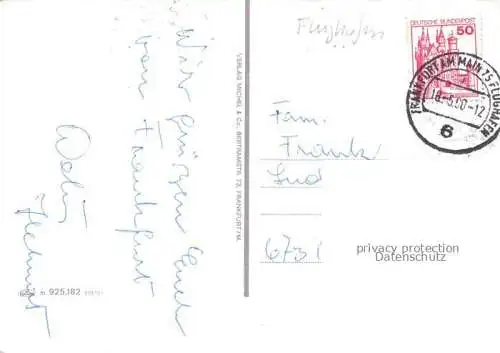 Wir grüßen Euch
von Frankfurt
Walter
Helmut
VERLAG MICHEL & Co., BERTRAMSTR. 72, FRANKFURT/M.
nr. 925,182
Flughafen
DEUTSCHE BUNDESPOST
50
FRANKFURT AM MAIN 75 FLUGHAFEN
-12
6
Fam.
Frank
6731
privacy protection
Datenschutz